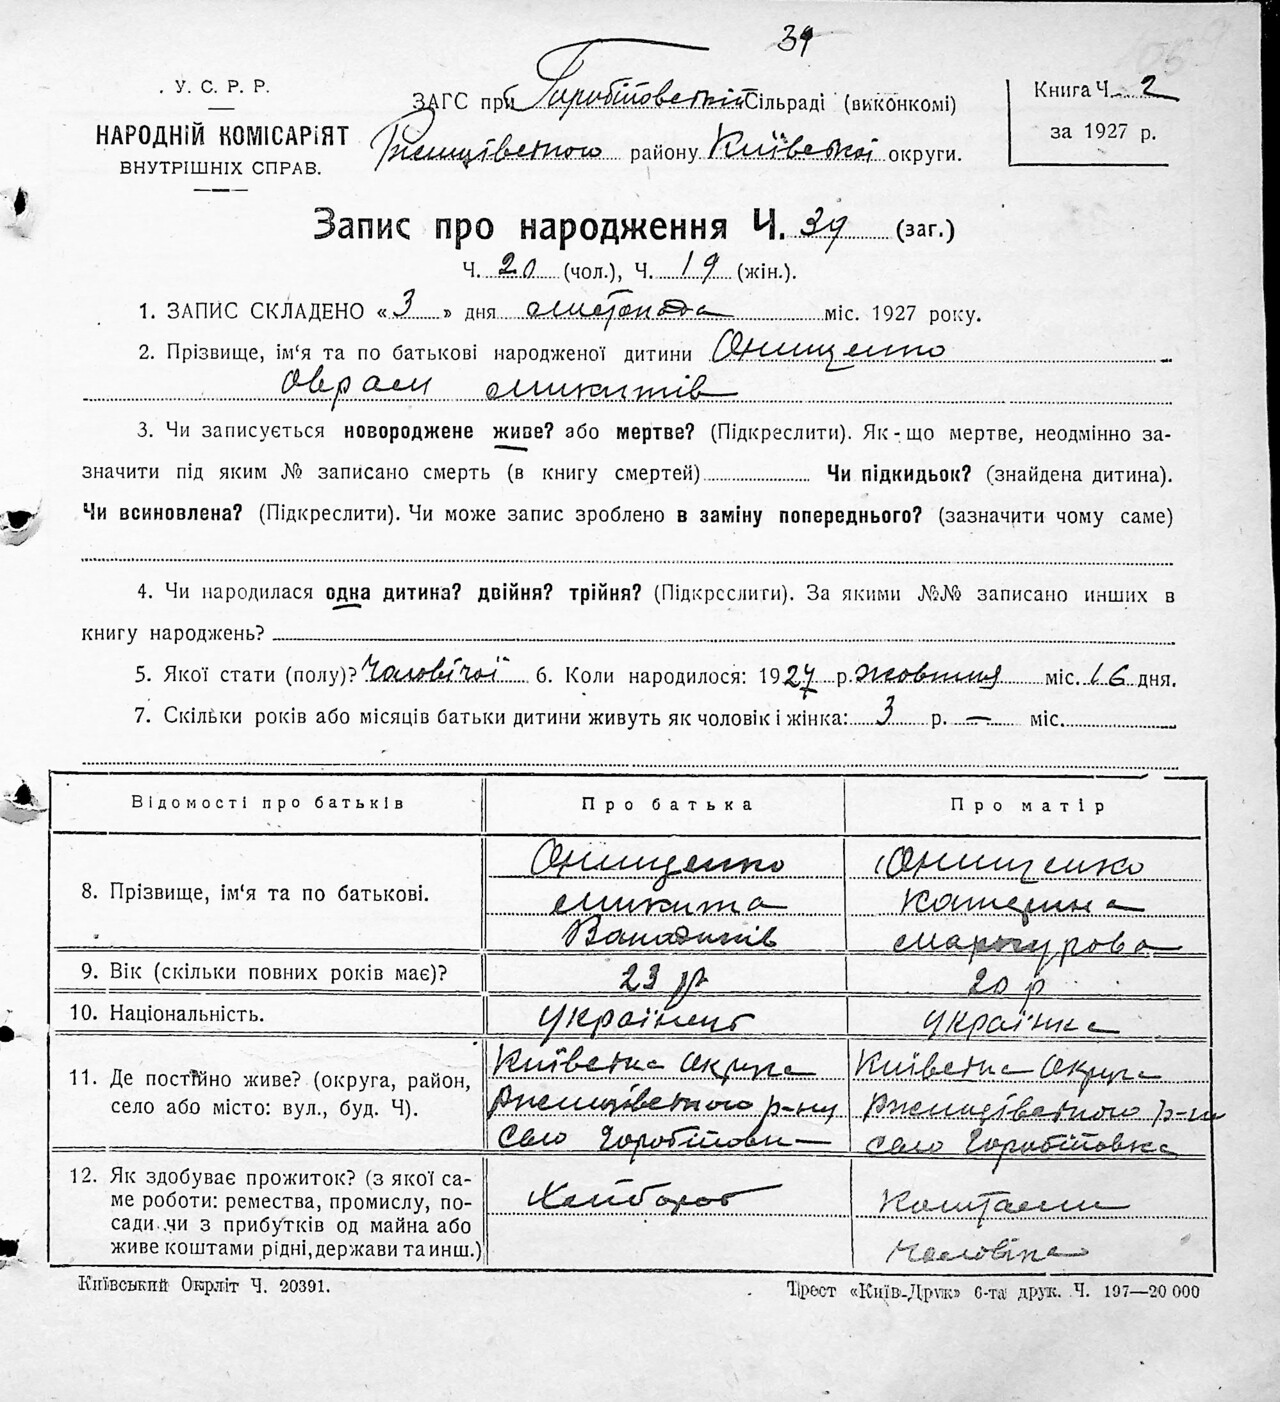 39
У. С. Р. Р.
НАРОДНІЙ КОМІСАРІЯТ
ВНУТРІШНІХ СПРАВ.
ЗАГС при Горобіївській Сільраді (виконкомі)
Ржищівского району Київської округи.
Книга Ч. 2
за 1927 р.
Запис про народження Ч. 39 (заг.)
Ч. 20 (чол.), Ч. 19 (жін.).
1. ЗАПИС СКЛАДЕНО « 3 » дня листопада міс. 1927 року.
2. Прізвище, ім'я та по батькові народженої дитини Онищенко
Оврам Микитів
3. Чи записується новороджене живе? або мертве? (Підкреслити). Як-що мертве, неодмінно за-
значити під яким № записано смерть (в книгу смертей) Чи підкидьок? (знайдена дитина).
Чи всиновлена? (Підкреслити). Чи може запис зроблено в заміну попереднього? (зазначити чому саме)
4. Чи народилася одна дитина? двійня? трійня? (Підкреслити). За якими №№ записано инших в
книгу народжень?
5. Якої стати (полу)? Чоловічої 6. Коли народилося: 1927 р. жовтня міс. 16 дня.
7. Скільки років або місяців батьки дитини живуть як чоловік і жінка: 3 р. — міс.
Відомості про батьків Про батька Про матір
8. Прізвище, ім'я та по батькові.
Онищенко Онищенко
Микита Катерина
9. Вік (скільки повних років має)? 23 р 20 р
10. Національність. Українець Українка
11. Де постійно живе? (округа, район,
село або місто: вул., буд. Ч).
Київська округа Київська округа
Ржищівского р-ну Ржищівского р-ну
село село
12. Як здобуває прожиток? (з якої са-
ме роботи: ремества, промислу, по-
сади чи з прибутків од майна або
живе коштами рідні, держави та инш.)
Хлібороб Коштами
чоловіка
Київський Окрліт Ч. 20391.
Трест «Київ-Друк» 6-та друк. Ч. 197—20 000